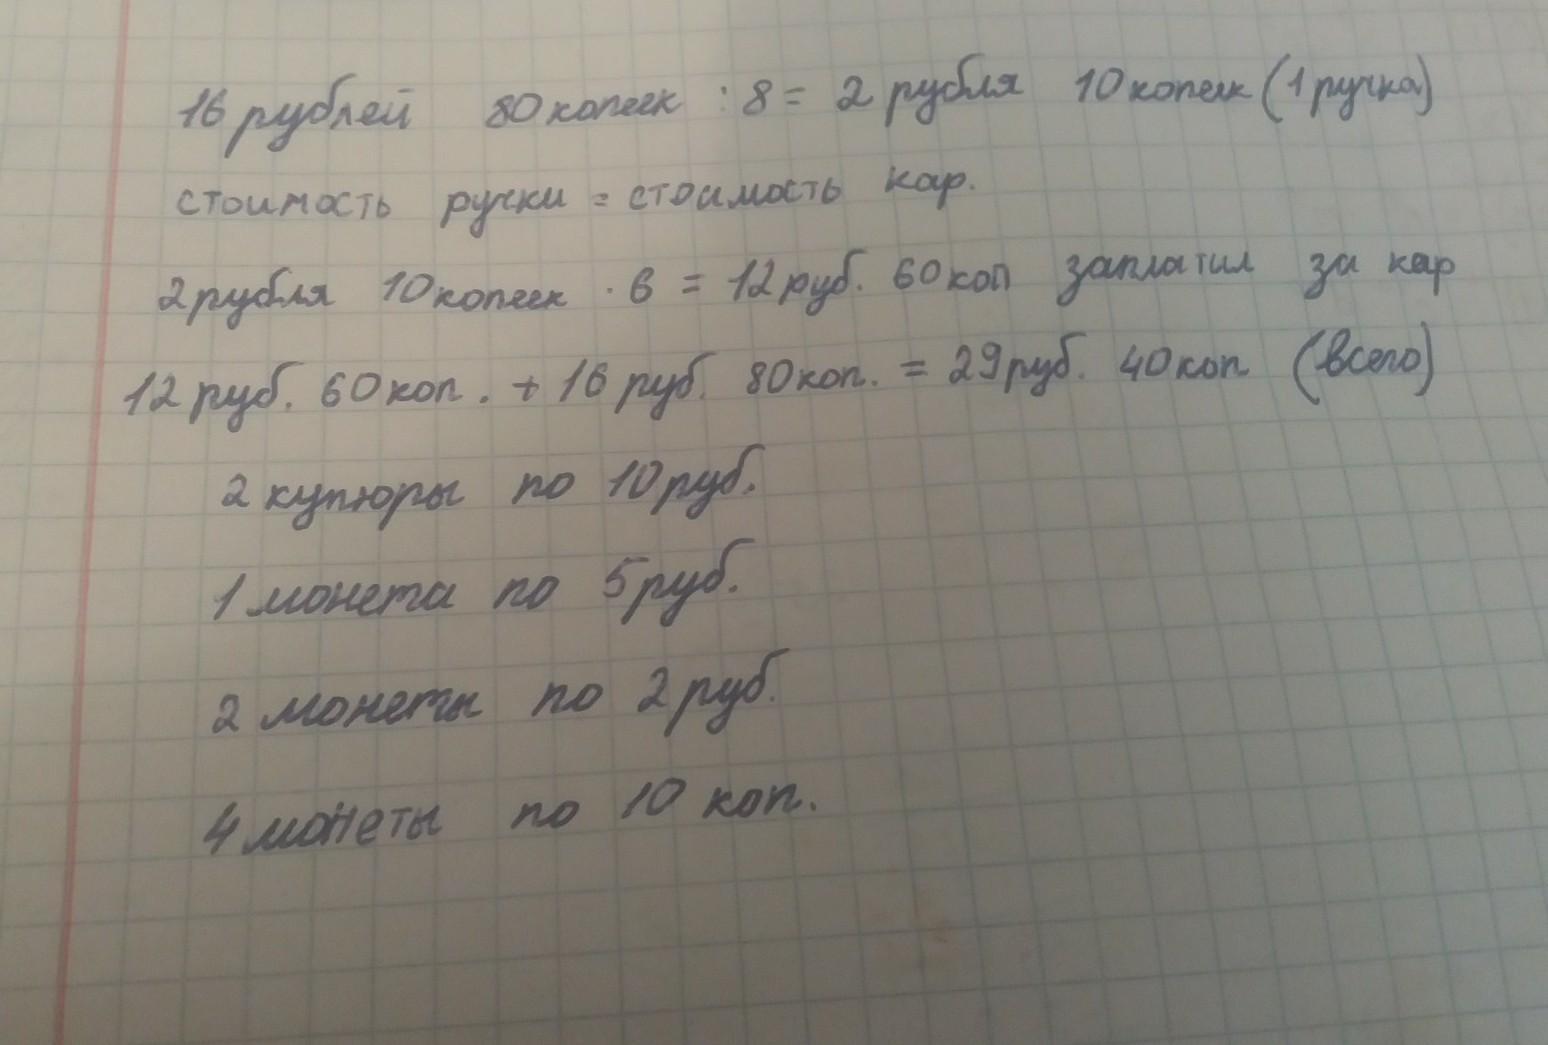 16 рублей 80 копеек : 8 = 2 рубля 10 копеек (1 ручка)
стоимость ручки = стоимость кар.
2 рубля 10 копеек · 6 = 12 руб. 60 коп заплатил за кар
12 руб. 60 коп. + 16 руб. 80 коп. = 29 руб. 40 коп (всего)
2 купюры по 10 руб.
1 монета по 5 руб.
2 монеты по 2 руб.
4 монеты по 10 коп.